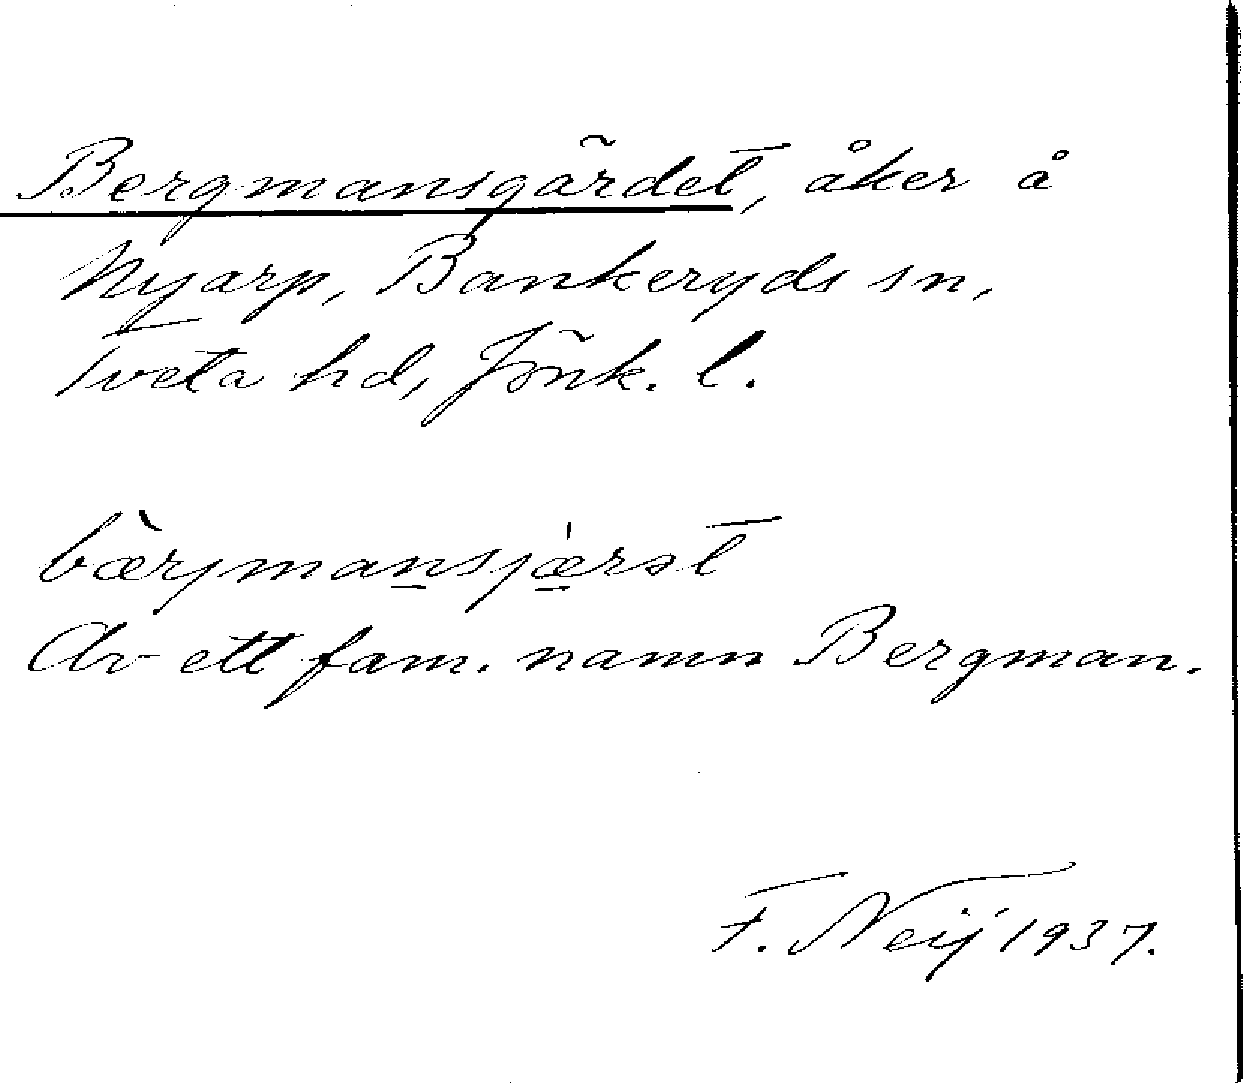 Bergmansgärdet, åker å
Nyarp, Bankeryds sn,
Tveta hd, Jönk. l.
bærjmansjærət
Av ett fam. namn Bergman.
F. Neij 1937.